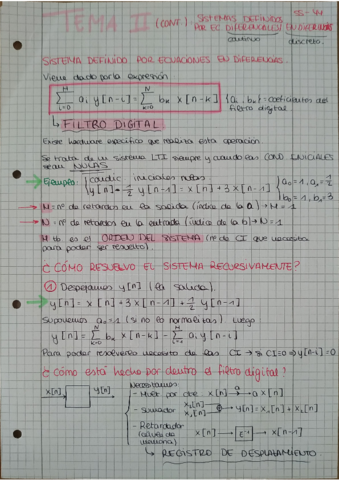 TEMA II (CONT.) SISTEMAS DEFINIDOS
POR EC DIFERENCIALES / EN DIFERENCIAS
continuo discreto.
SISTEMA DEFINIDO POR ECUACIONES EN DIFERENCIAS.
Viene dado por la expresión
M Σ i=0 ai y[n-i] = N Σ k=0 bk x[n-k] {ai, bk: coeficientes del
filtro digital
↳ FILTRO DIGITAL
Existe hardware específico que realiza esta operación.
Se trata de un sistema LTI siempre y cuando las COND INICIALES
sean NULAS
Ejemplo: {condic iniciales nulas
y[n] - 1/2 y[n-1] = x[n] + 3 x[n-1] {a0=1, a1=1/2
b0=1, b1=3
→ M = nº de retardos en la salida (índice de la a) → M=1
→ N = nº de retardos en la entrada (índice de la b) → N=1
M tb es el ORDEN DEL SISTEMA (nº de CI que necesito
para poder ser resuelto).
¿CÓMO RESUELVO EL SISTEMA RECURSIVAMENTE?
① Despejamos y[n] (la salida).
y[n] = x[n] + 3x[n-1] + 1/2 y[n-1]
Suponemos a0=1 (si no lo normalizas) luego
y[n] = N Σ k=0 bk x[n-k] - M Σ i=1 ai y[n-i]
Para poder resolverlo necesito de las CI → si CI=0 ⇒ y[n-i]=0
¿Cómo está hecho por dentro el filtro digital?
x[n] → y[n] Necesitamos:
- Mult por cte. x[n] a → a x[n]
- Sumador x1[n] x2[n] ⊕ → y[n] = x1[n] + x2[n]
- Retardador x[n] → z⁻¹ → x[n-1]
memoria)
↳ REGISTRO DE DESPLAZAMIENTO